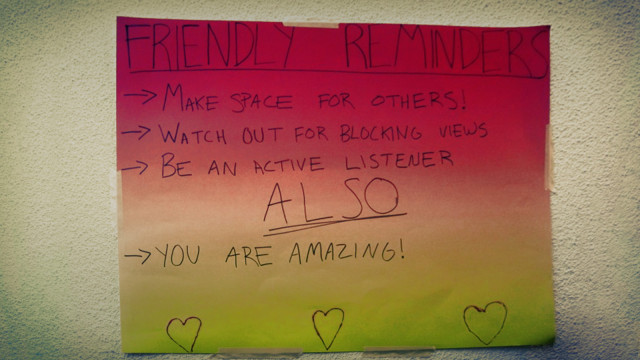 FRIENDLY REMINDERS
→ MAKE SPACE FOR OTHERS!
→ WATCH OUT FOR BLOCKING VIEWS
→ BE AN ACTIVE LISTENER
ALSO
→ YOU ARE AMAZING!